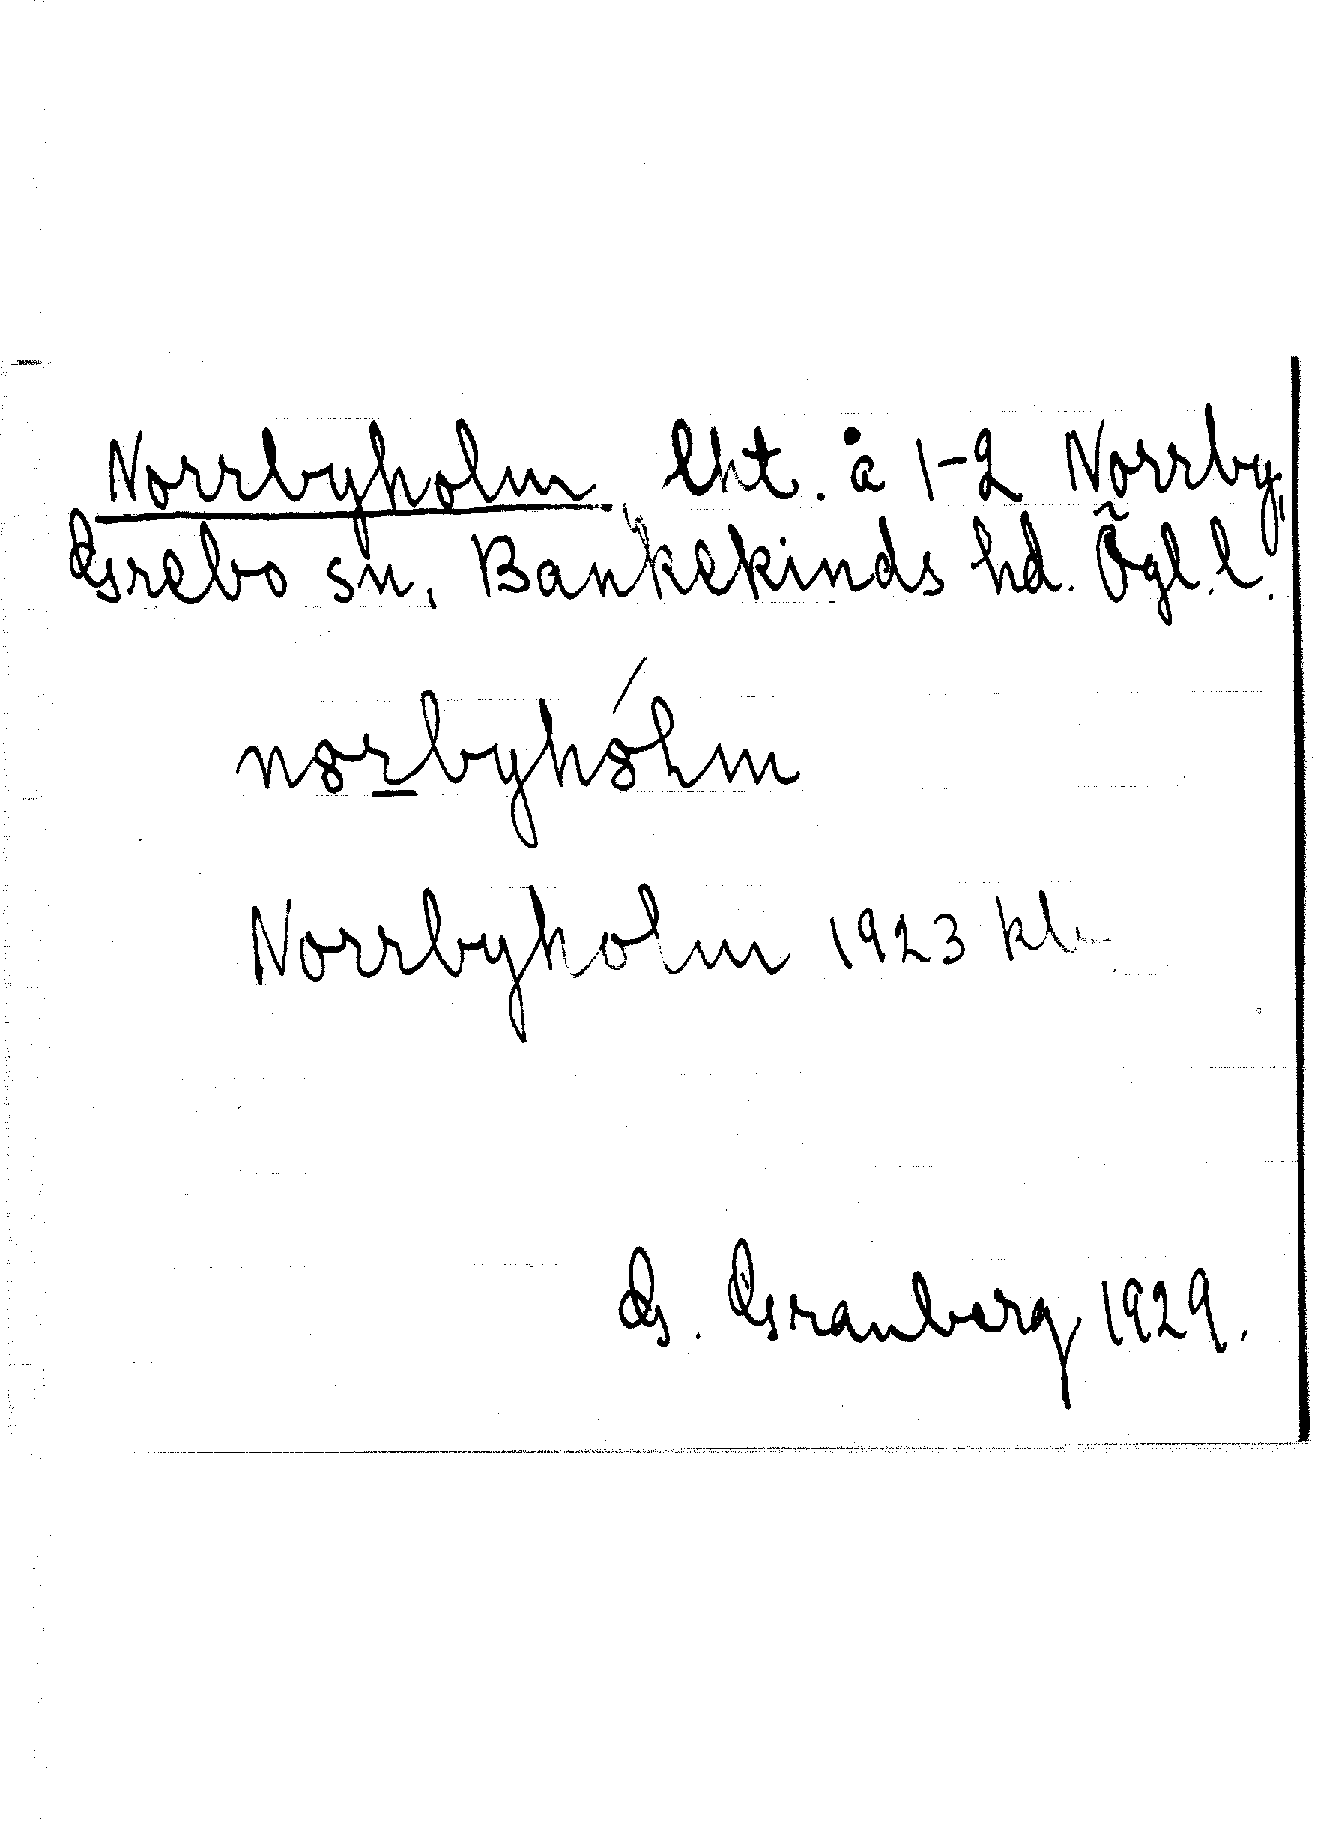 Norrbyholm, lht. å 1-2 Norrby,
Grebo sn, Bankekinds hd. Ögl. l.
nørbyhólm
Norrbyholm 1923 kl
G. Granberg 1929.